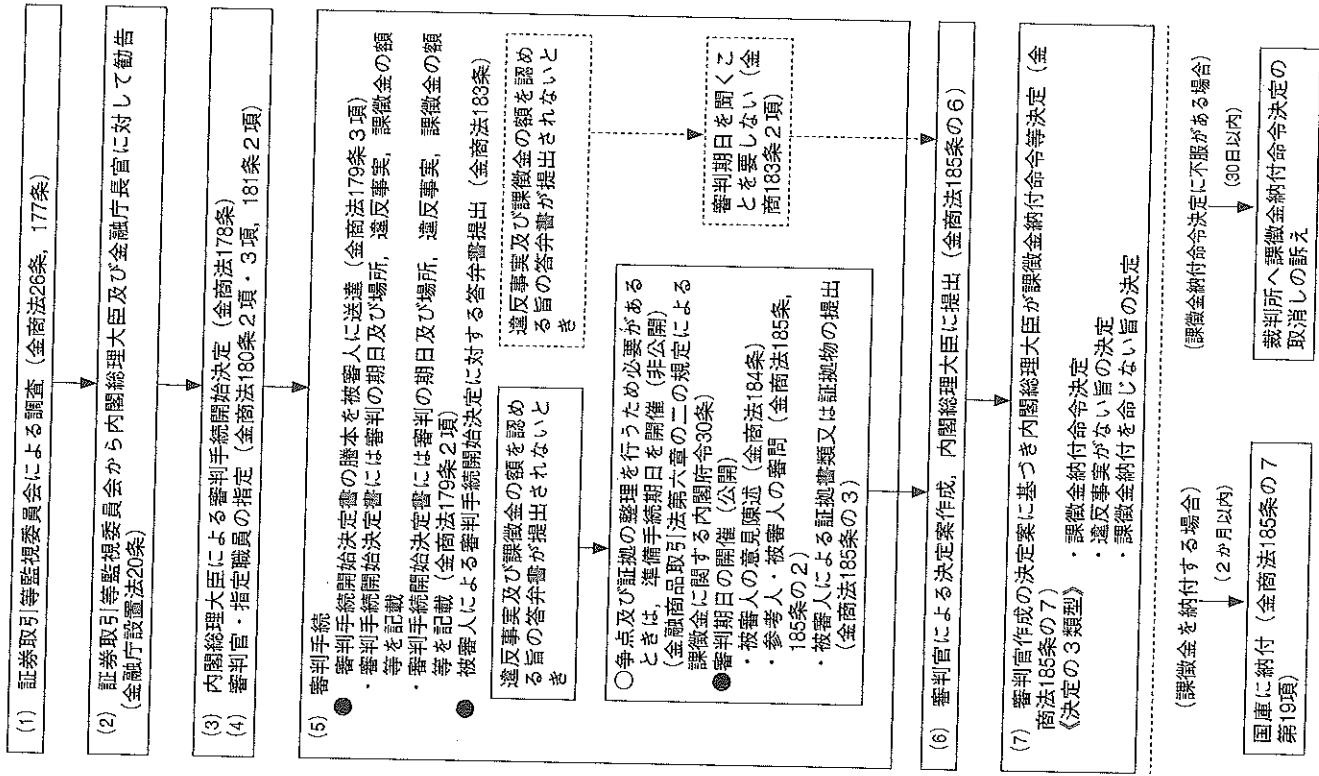 (1) 証券取引等監視委員会による調査（金商法26条，177条）
(2) 証券取引等監視委員会から内閣総理大臣及び金融庁長官に対して勧告
（金融庁設置法20条）
(3) 内閣総理大臣による審判手続開始決定（金商法178条）
(4) 審判官・指定職員の指定（金商法180条2項・3項，181条2項）
(5) 審判手続
● 審判手続開始決定書の謄本を被審人に送達（金商法179条3項）
・審判手続開始決定書には審判の期日及び場所，違反事実，課徴金の額
等を記載
・審判手続開始決定書には審判の期日及び場所，違反事実，課徴金の額
等を記載（金商法179条2項）
● 被審人による審判手続開始決定に対する答弁書提出（金商法183条）
違反事実及び課徴金の額を認め
る旨の答弁書が提出されないと
き
違反事実及び課徴金の額を認め
る旨の答弁書が提出されないと
き
○争点及び証拠の整理を行うため必要がある
ときは，準備手続期日を開催（非公開）
（金融商品取引法第六章の二の規定による
課徴金に関する内閣府令30条）
●審判期日の開催（公開）
・被審人の意見陳述（金商法184条）
・参考人・被審人の審問（金商法185条，
185条の2）
・被審人による証拠書類又は証拠物の提出
（金商法185条の3）
審判期日を聞くこ
とを要しない（金
商183条2項）
(6) 審判官による決定案作成，内閣総理大臣に提出（金商法185条の6）
(7) 審判官作成の決定案に基づき内閣総理大臣が課徴金納付命令等決定（金
商法185条の7）
《決定の3類型》
・課徴金納付命令決定
・違反事実がない旨の決定
・課徴金納付を命じない旨の決定
（課徴金を納付する場合）
（2か月以内）
国庫に納付（金商法185条の7
第19項）
（課徴金納付命令決定に不服がある場合）
（30日以内）
裁判所へ課徴金納付命令決定の
取消しの訴え